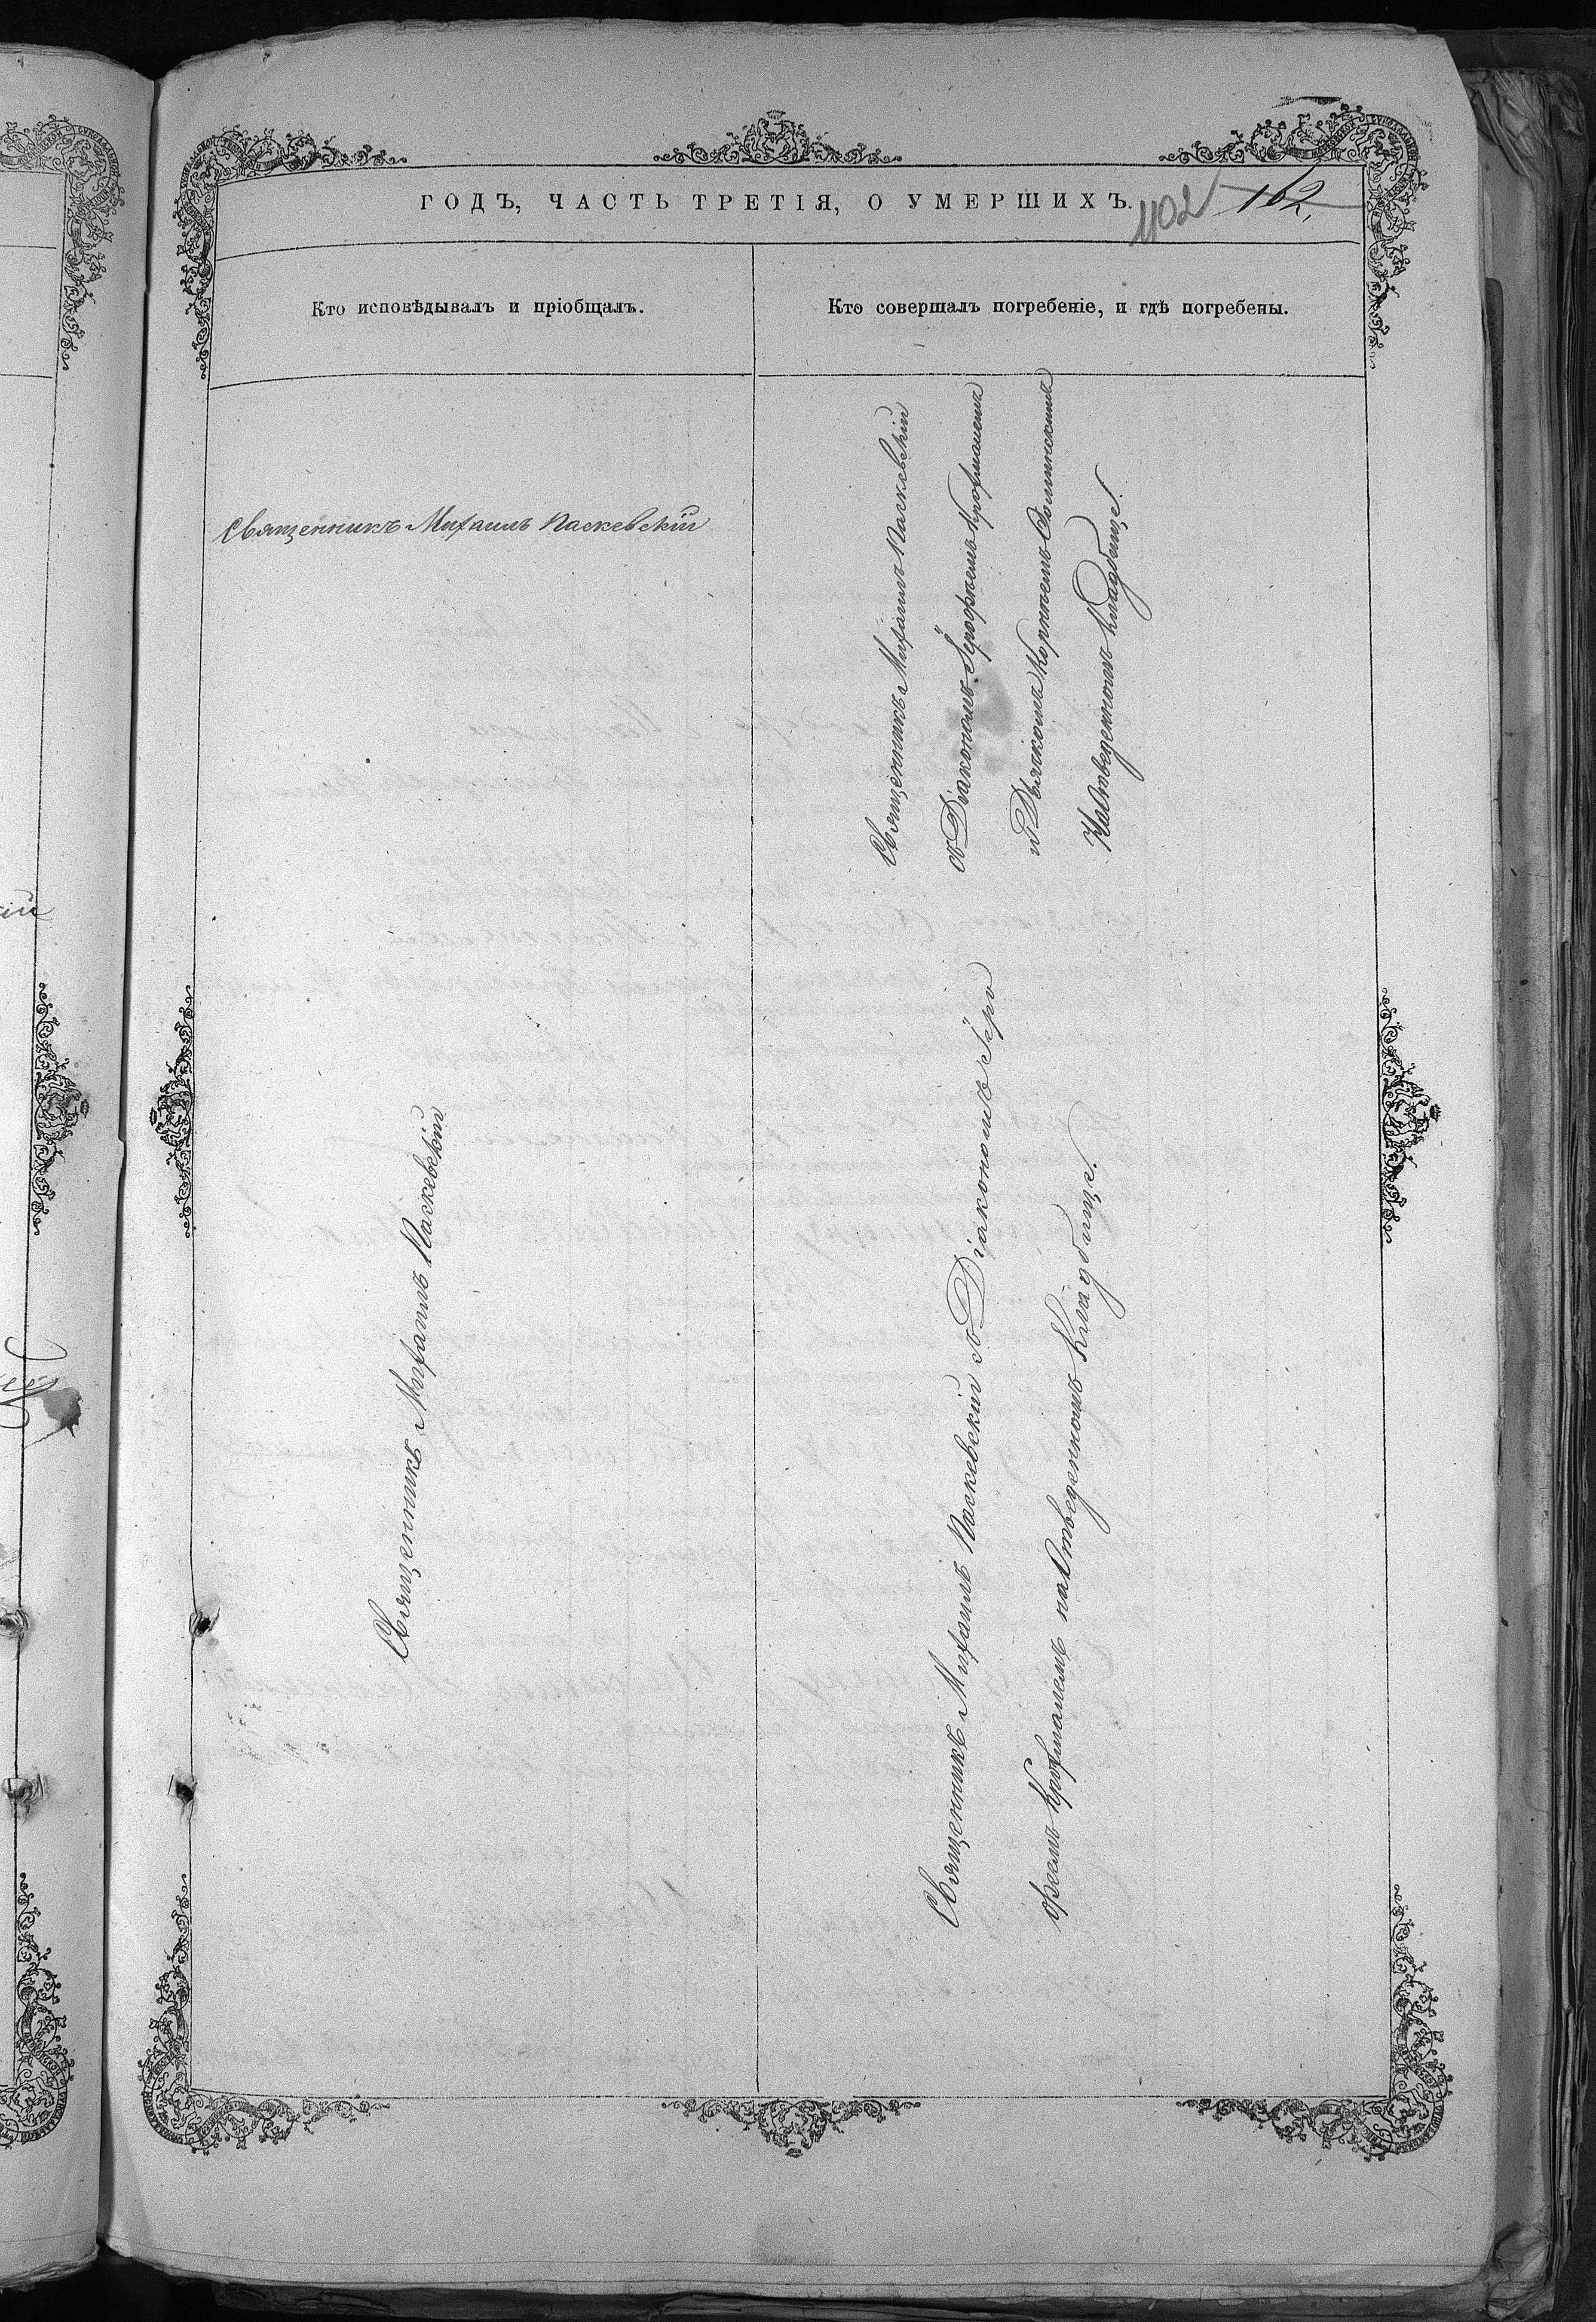 ГОДЪ, ЧАСТЬ ТРЕТІЯ, О УМЕРШИХЪ.
402 162,
Кто исповѣдывалъ и пріобщалъ.
Кто совершалъ погребеніе, и гдѣ погребены.
Священникъ Михаилъ Паскевскій
Священникъ Михаилъ Паскевскій
съ Діакономъ Іероѳеемъ
и Дьякомъ Корнѣемъ
На Отведенномъ Кладбище.
Священникъ Михаилъ Паскевскій
Священникъ Михаилъ Паскевскій съ Діакономъ Іеро
ѳеемъ на Отведенномъ Кладбище.